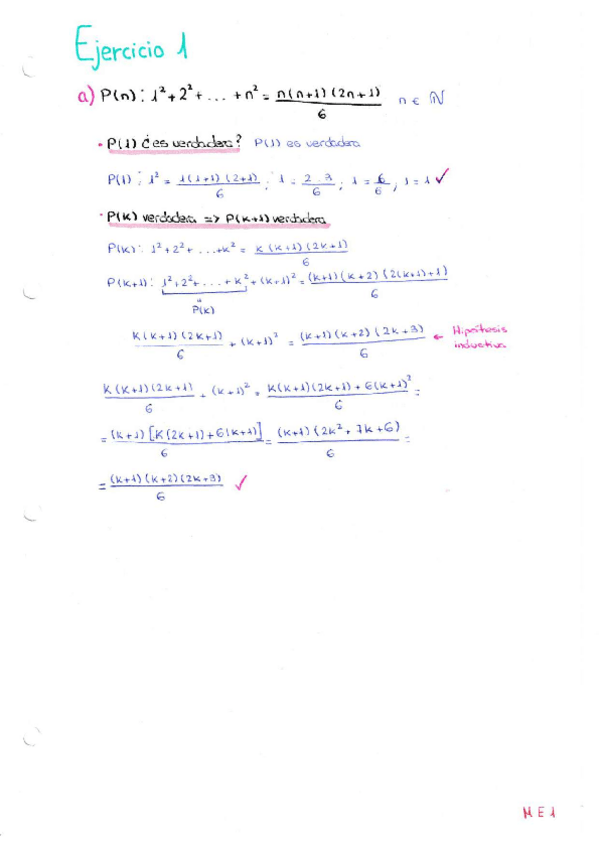 Ejercicio 1
a) P(n): 1² + 2² + ... + n² = n(n+1)(2n+1) / 6 n ∈ ℕ
· P(1) ¿es verdadera? P(1) es verdadera
P(1): 1² = 1(1+1)(2+1) / 6 ; 1 = 2·3 / 6 ; 1 = 6 / 6 ; 1 = 1 ✓
· P(k) verdadera => P(k+1) verdadera
P(k): 1² + 2² + ... + k² = k(k+1)(2k+1) / 6
P(k+1): 1² + 2² + ... + k² + (k+1)² = (k+1)(k+2)(2(k+1)+1) / 6
P(k)
k(k+1)(2k+1) / 6 + (k+1)² = (k+1)(k+2)(2k+3) / 6 ← Hipótesis inductiva
k(k+1)(2k+1) / 6 + (k+1)² = k(k+1)(2k+1) + 6(k+1)² / 6 =
= (k+1)[k(2k+1)+6(k+1)] / 6 = (k+1)(2k² + 7k + 6) / 6 =
= (k+1)(k+2)(2k+3) / 6 ✓
M E 1